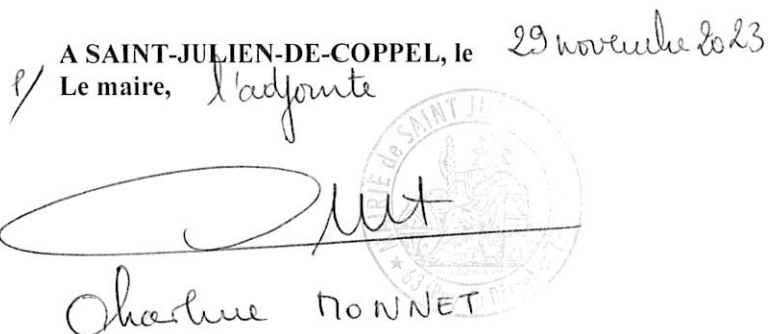 A SAINT-JULIEN-DE-COPPEL, le 29 novembre 2023
P/ Le maire, l'adjointe
MAIRIE de SAINT JU
63 (Puy de Dôme)
MONNET